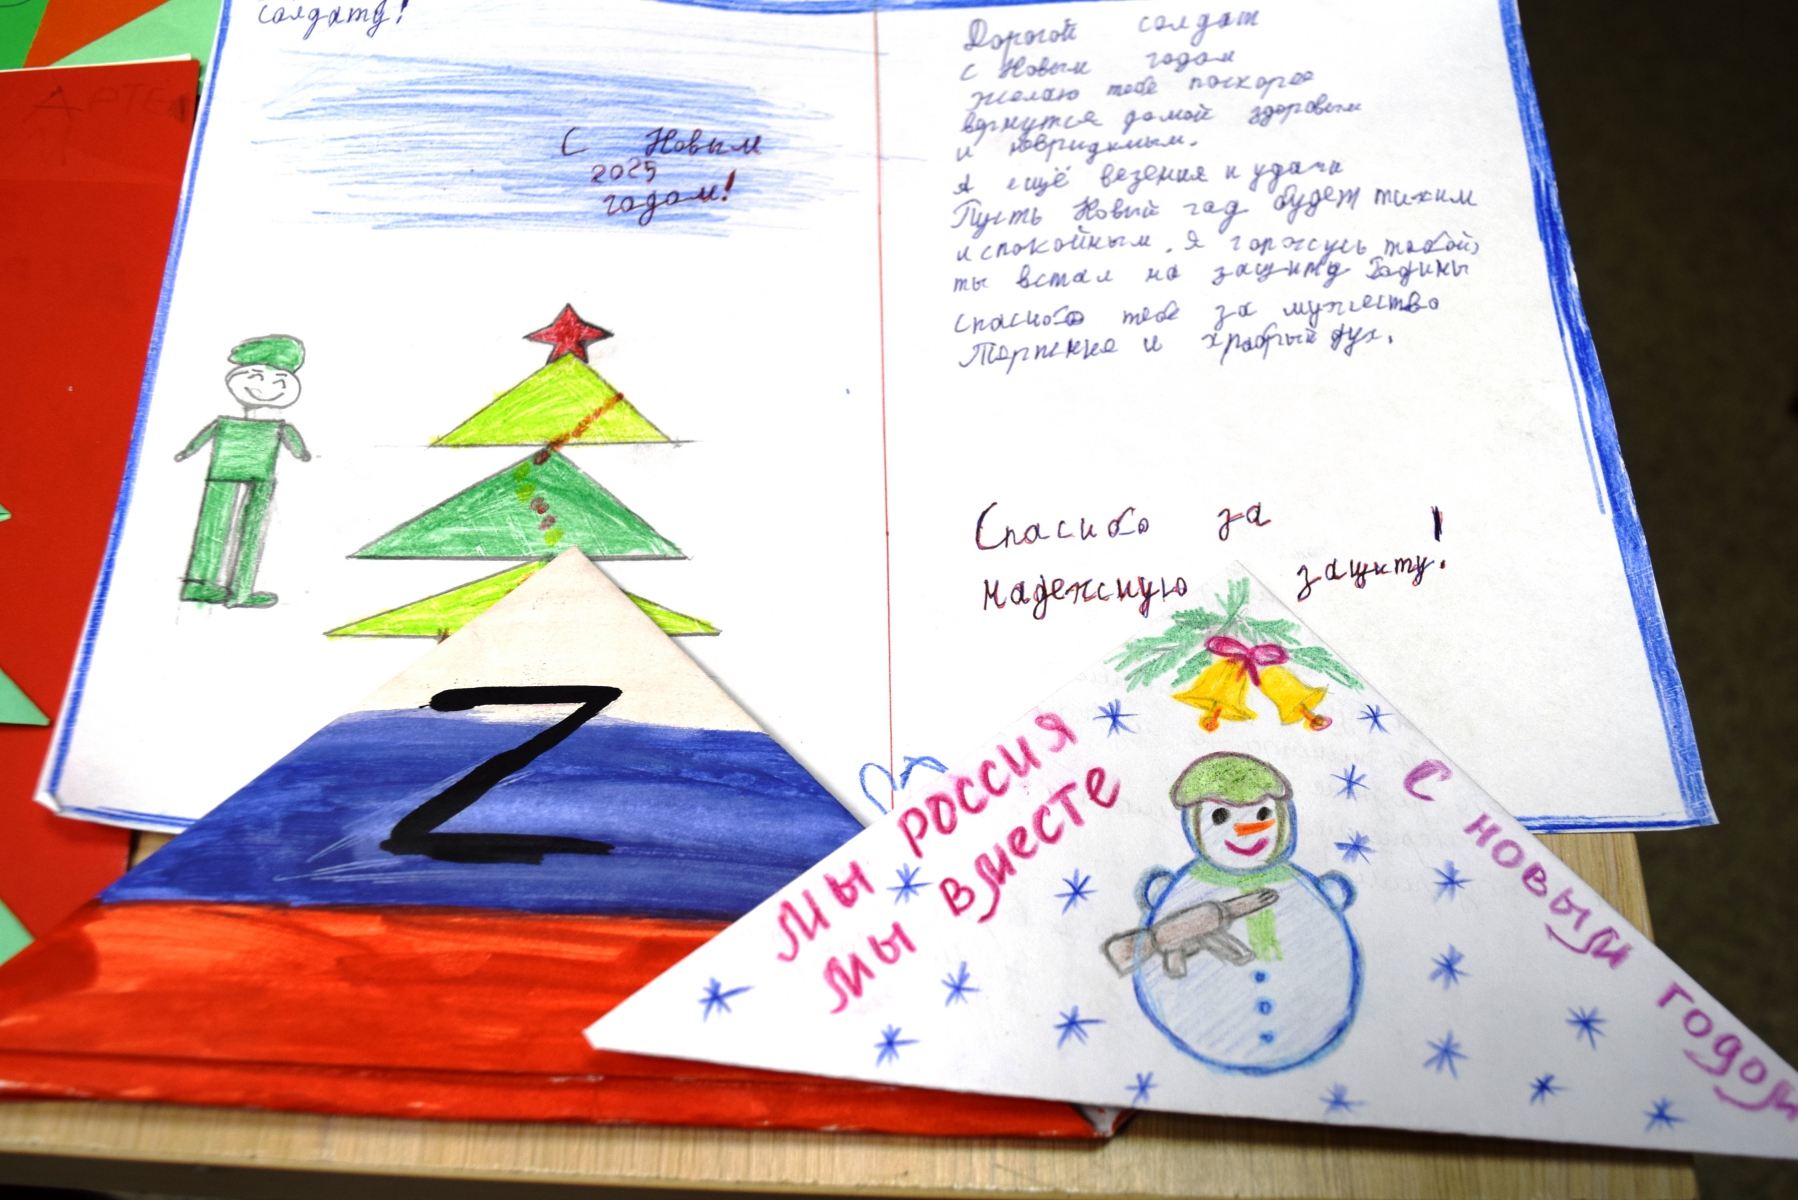 солдату!
С Новым
2025
годом!
Дорогой солдат
с Новым годом
желаю тебе поскорее
вернутся домой здоровым
и невридимым.
А ещё везения и удачи
Пусть Новый год будет тихим
и спокойным. Я горжусь тобой,
ты встал на защиту Родины
спасибо тебе за мужество
Терпение и храбрый дух.
Спасибо за
надежную защиту!
Z
МЫ РОССИЯ
МЫ ВМЕСТЕ
С НОВЫМ ГОДОМ
АРТЕ